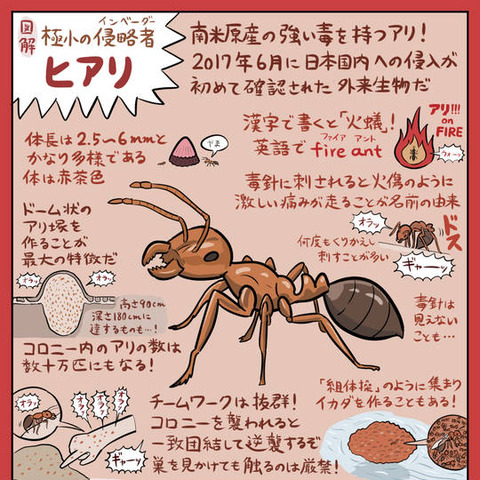 図解
インベーダー
極小の侵略者
ヒアリ
南米原産の強い毒を持つアリ！
2017年6月に日本国内への侵入が
初めて確認された外来生物だ
漢字で書くと「火蟻」！
ファイア アント
英語で fire ant
アリ!!!
on
FIRE
体長は2.5〜6mmと
かなり多様である
体は赤茶色
毒針に刺されると火傷のように
激しい痛みが走ることが名前の由来
オラッ
ドス
何度もくりかえし
刺すことが多い
ギャーッ
ドーム状の
アリ塚を
作ることが
最大の特徴だ
オラッ
オラッ
高さ90cm
深さ180cmに
達するものも…！
毒針は
見えない
ことも…
コロニー内のアリの数は
数十万匹にもなる！
オラッ
オラッ
オラッ
オラッ
ギャーッ
チームワークは抜群！
コロニーを襲われると
一致団結して逆襲するぞ
巣を見かけても触るのは厳禁！
「組体操」のように集まり
イカダを作ることもある！